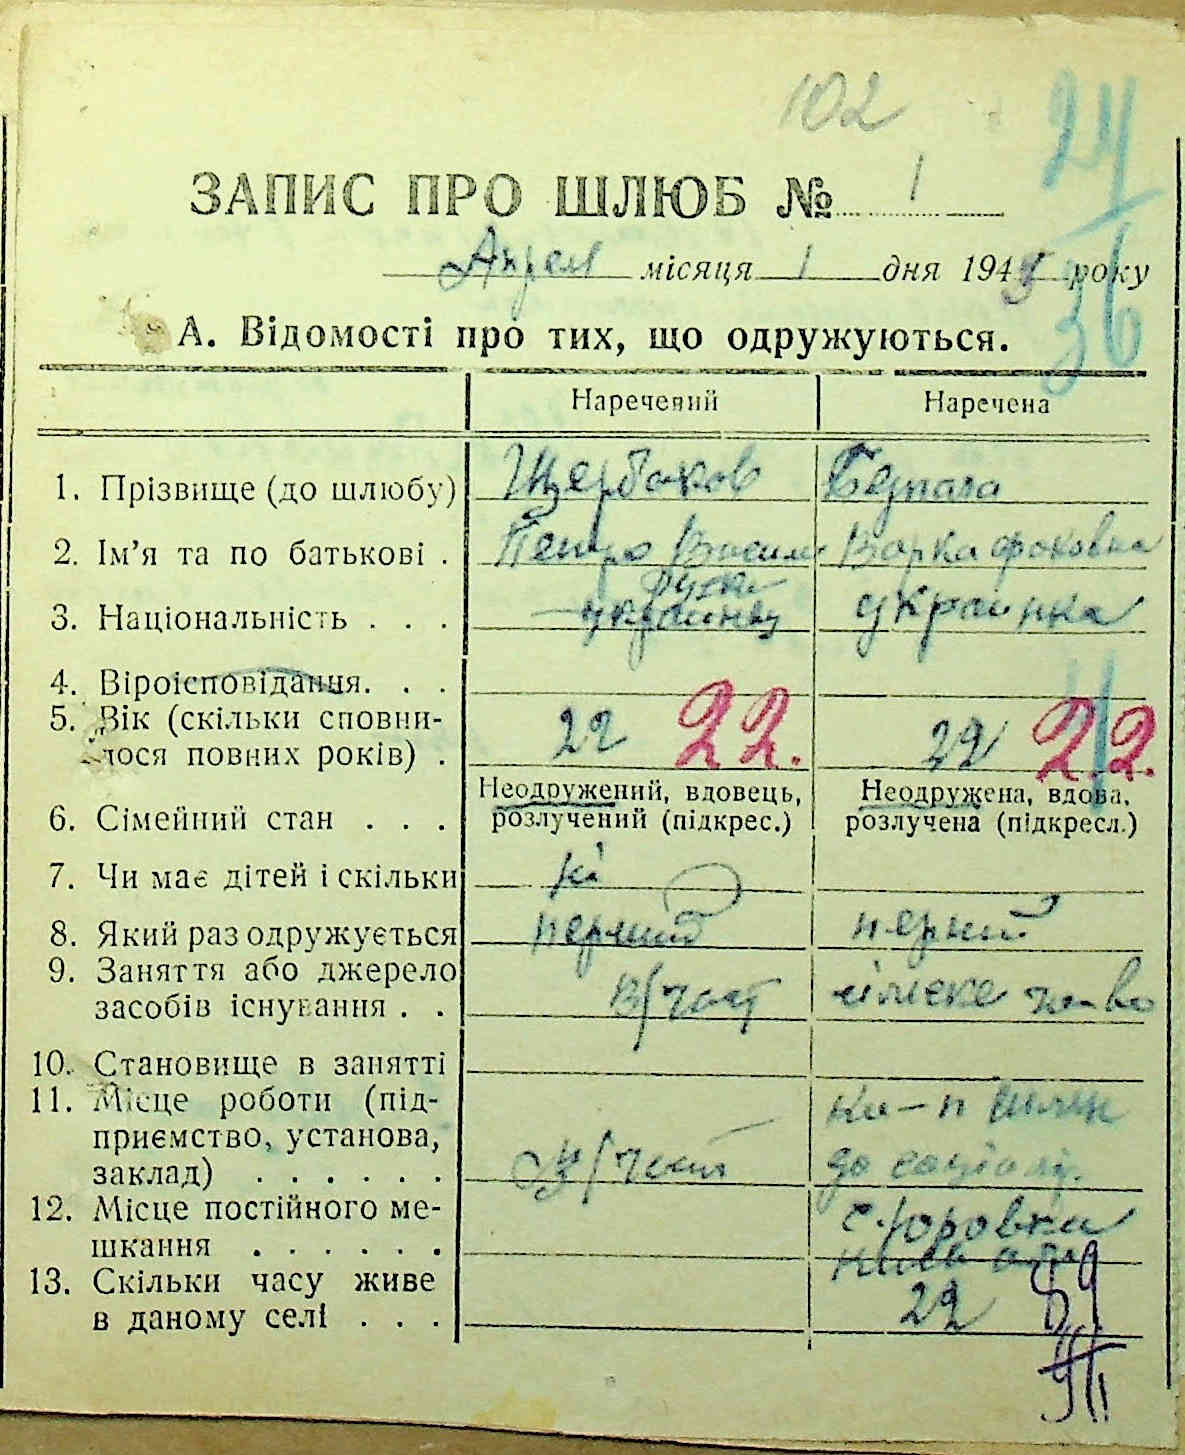 102
24
ЗАПИС ПРО ШЛЮБ № 1
Апрел місяця 1 дня 1945 року
36
А. Відомості про тих, що одружуються.
Наречений Наречена
1. Прізвище (до шлюбу) Щербаков
2. Ім’я та по батькові . Петро Васил Варка Фоковна
3. Національність . . . украинец украинка
4. Віроісповідання. . .
5. Вік (скільки сповни-
лося повних років) . 22 22. 22 22.
6. Сімейний стан . . . Неодружений, вдовець, Неодружена, вдова,
розлучений (підкрес.) розлучена (підкресл.)
7. Чи має дітей і скільки
8. Який раз одружується перший перший
9. Заняття або джерело
засобів існування . . В/част
10. Становище в занятті
11. Місце роботи (під-
приємство, установа,
заклад) . . . . . . В/част
12. Місце постійного ме-
шкання . . . . . .
13. Скільки часу живе
в даному селі . . . 22